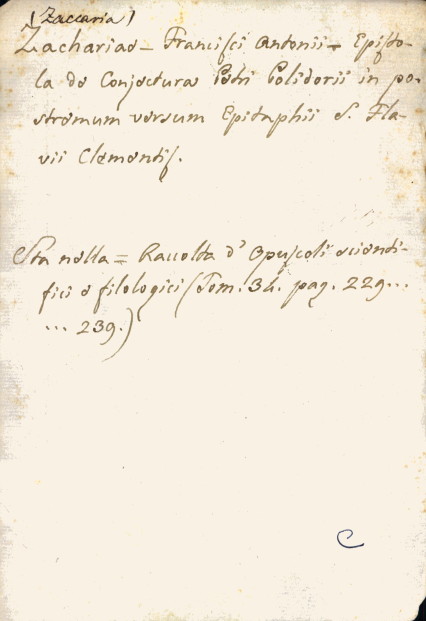 (Zaccaria)
Zachariae = Francisci Antonii = Episto-
la de Conjectura Petri Polidorii in po-
stremum versum Epitaphii S. Fla-
vii Clementis.
Sta nella = Raccolta d' Opuscoli scienti-
fici e filologici (Tom. 34. pag. 229...
... 239.)
C